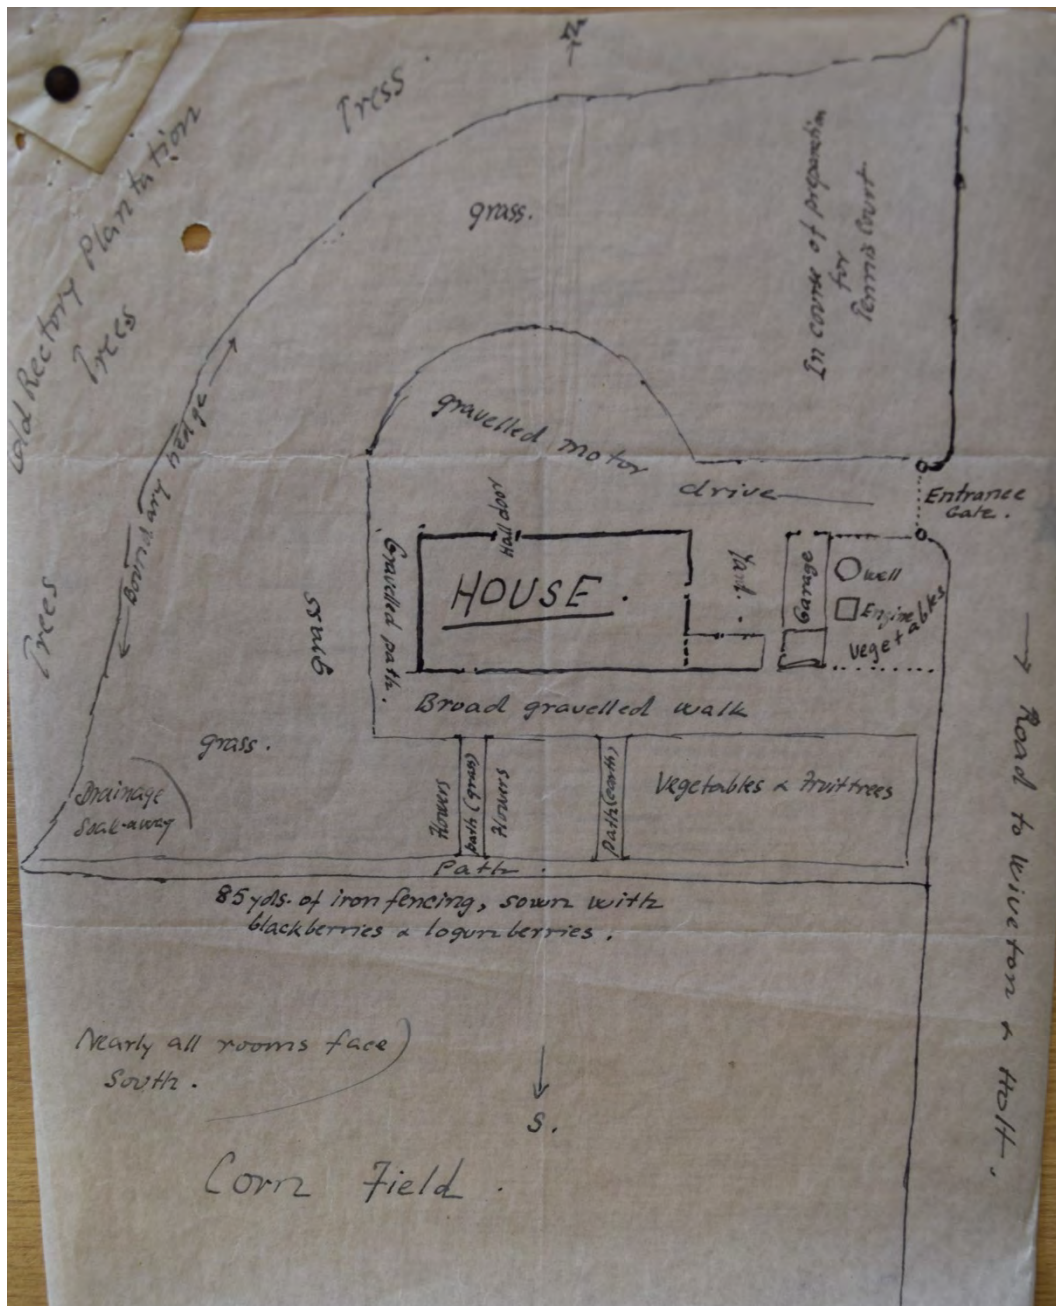 N
Tress.
Old Rectory Plantation
Trees
grass.
In course of preparation
for
Tennis Court
Boundary hedge
gravelled motor
drive
Entrance
Gate.
Hall door
Gravelled path.
HOUSE.
Yard.
Garage
well
Engine
Vegetables
Trees
grass
Broad gravelled walk
grass.
Drainage
Soak-away
Flowers
path (grass)
Flowers
Path (earth)
Vegetables & Fruit trees
Path.
85 yds. of iron fencing, sown with
blackberries & logunberries.
Road to Wiveton & Holt.
Nearly all rooms face
South.
S.
Corn Field.